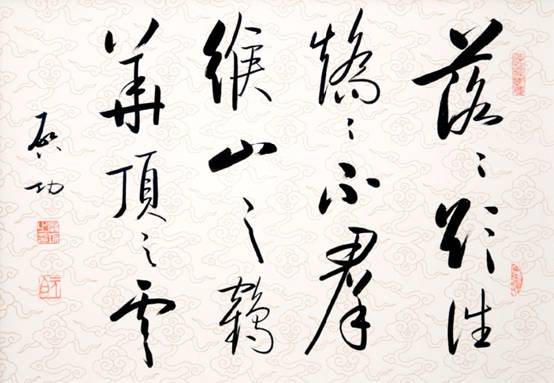 落〻欲往
矯〻不羣
緱山之鶴
華頂之雲
啟功